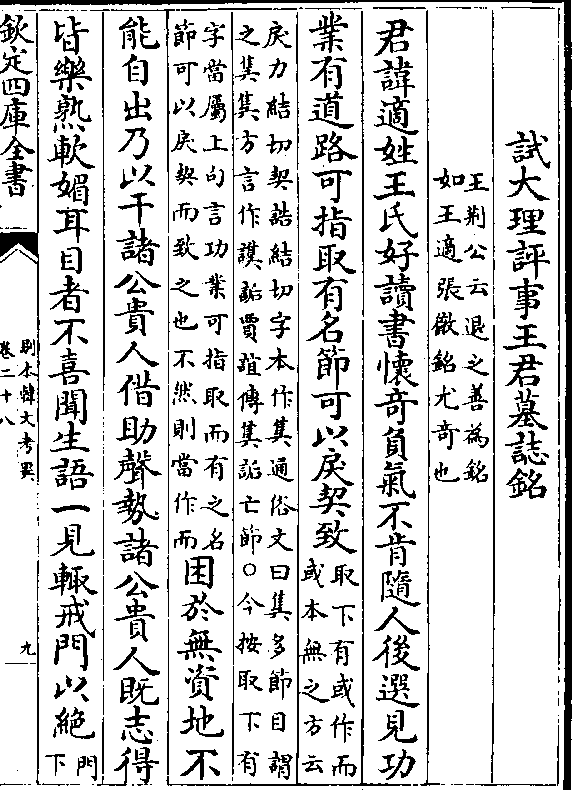 試大理評事王君墓誌銘
王荆公云退之善為銘
如王適張徹銘尤奇也
君諱適姓王氏好讀書懷奇負氣不肯隨人後選見功
業有道路可指取有名節可以戾契致
取下有或作而
或本無之方云
戾力結切契詰結切字本作奊通俗文曰奊多節目謂
之奊奊方言作謑詬賈誼傳奊詬亡節○今按取下有
字當屬上句言功業可指取而有之名
節可以戾契而致之也不然則當作而
困於無資地不
能自出乃以干諸公貴人借助聲勢諸公貴人既志得
皆樂熟軟媚耳目者不喜聞生語一見輒戒門以絶
門
下
欽定四庫全書
别本韓文考異
卷二十八
九